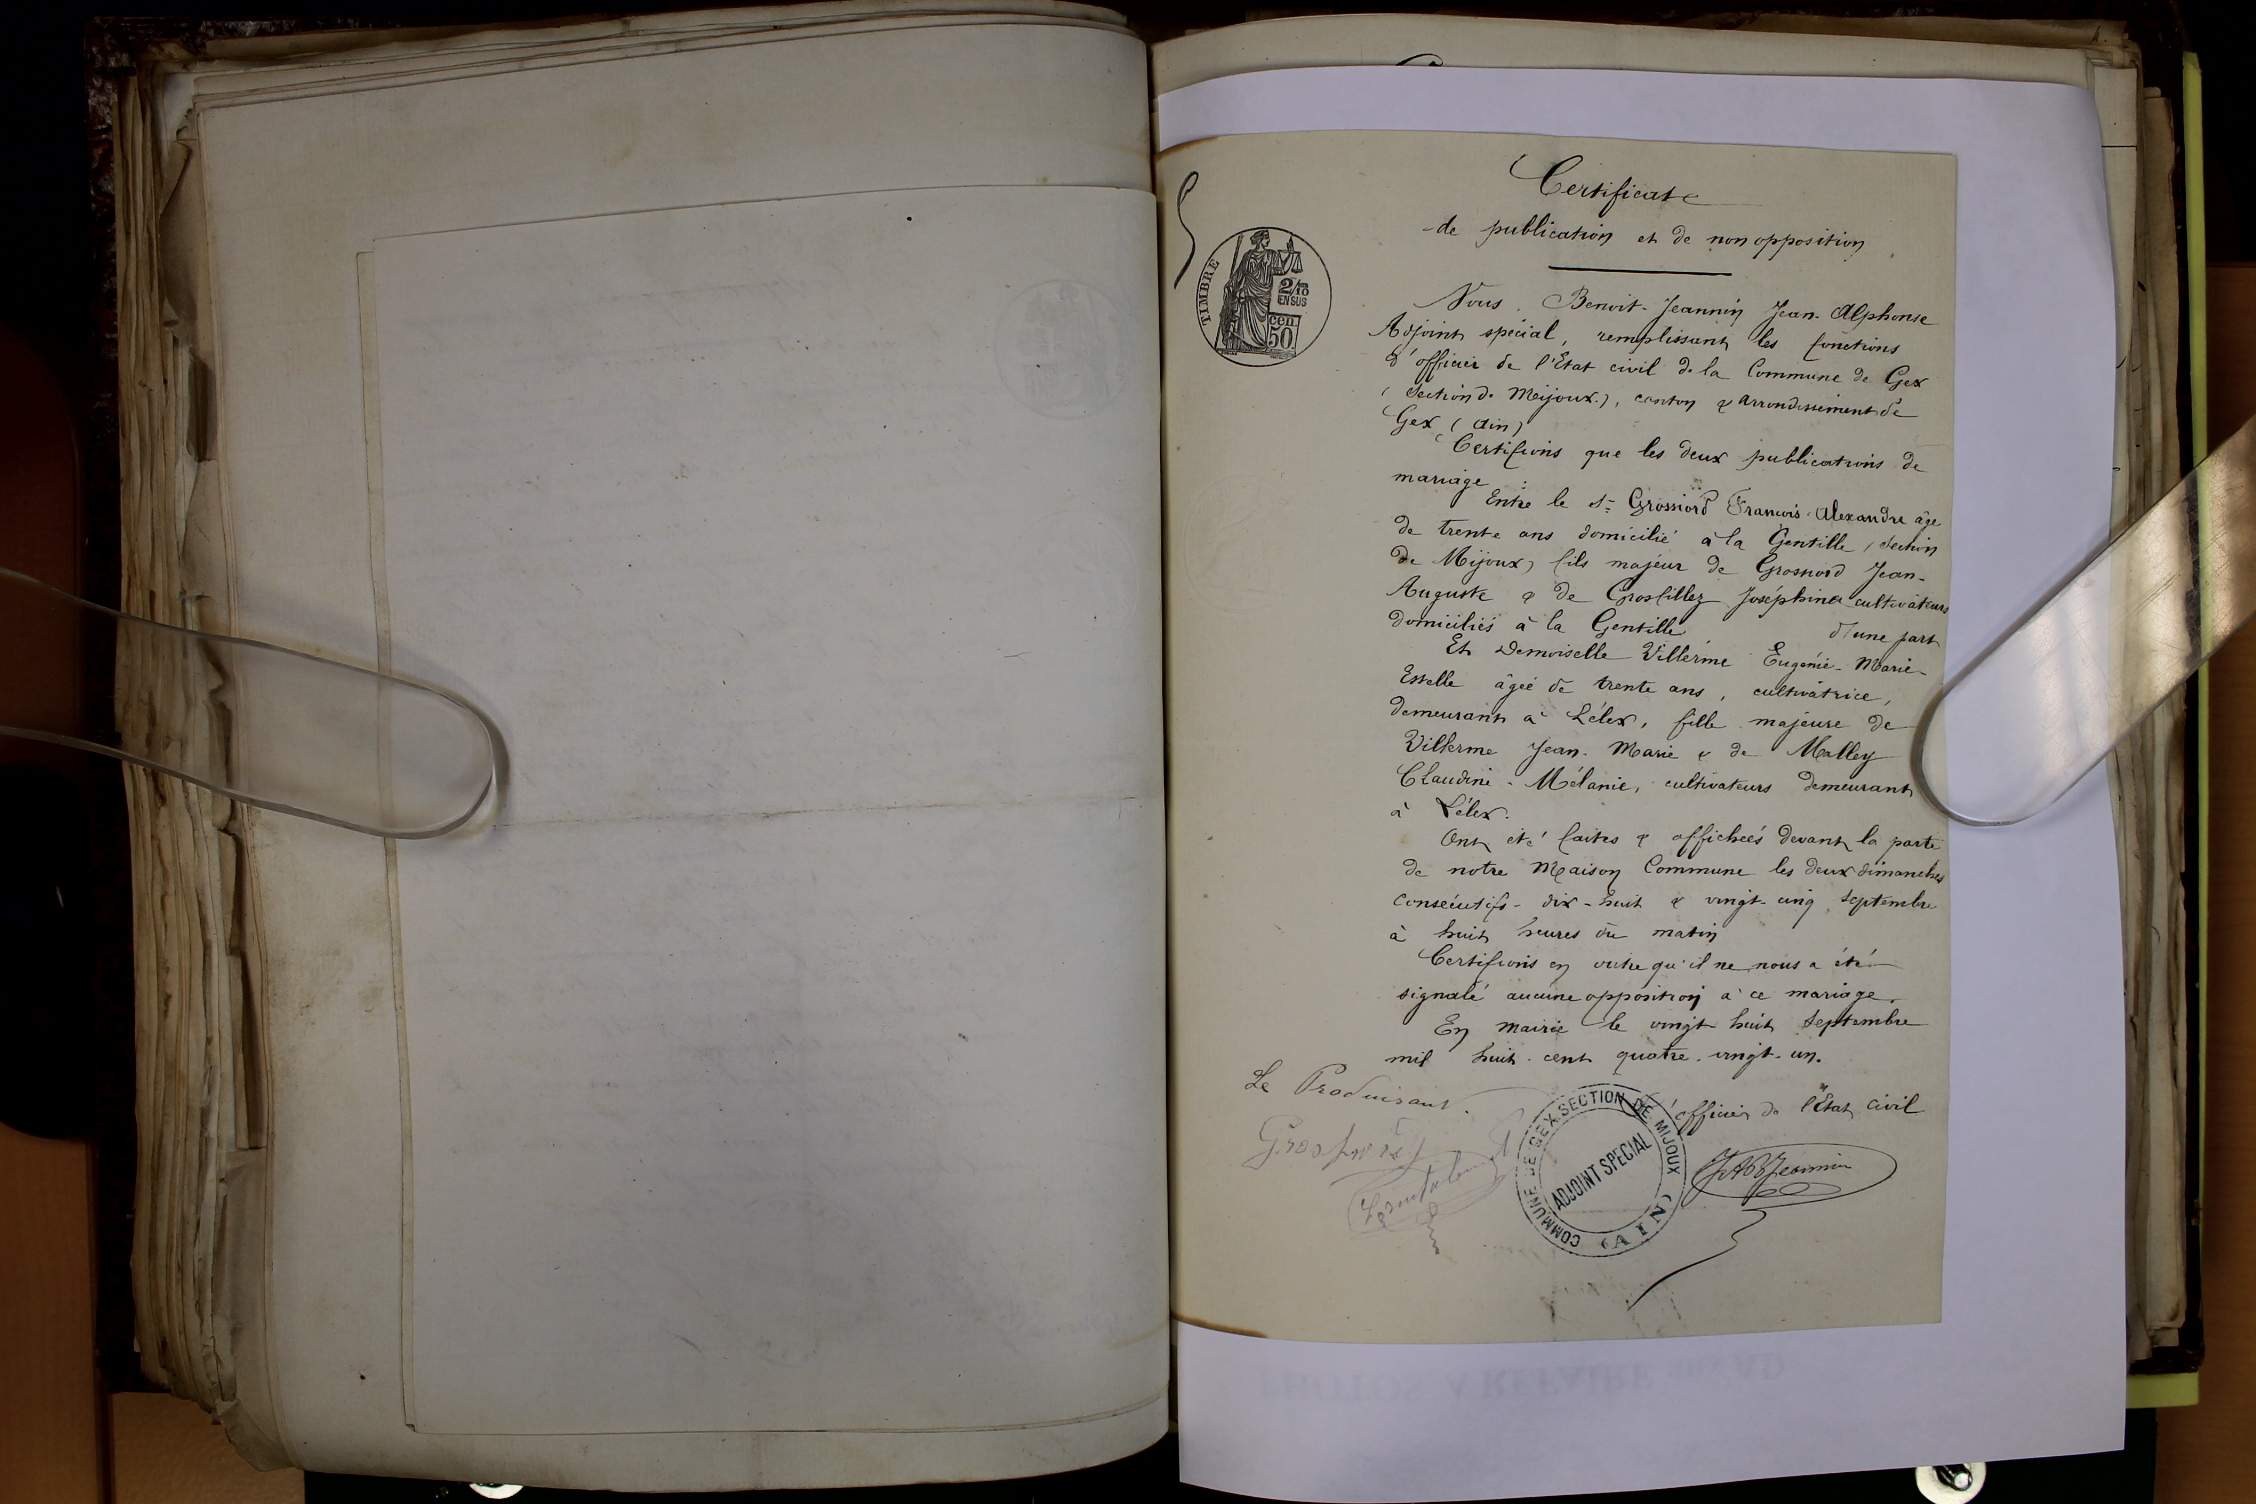 Certificat
de publication et de non opposition
TIMBRE
2/10
EN SUS
50
cen.
Nous Benoit-Jeannin Jean-Alphonse
Adjoint spécial, remplissant les fonctions
d'officier de l'Etat civil de la Commune de Gex
(Section de Mijoux), canton & arrondissement de
Gex (Ain)
Certifions que les deux publications de
mariage :
Entre le Sr Grossiord François-Alexandre âgé
de trente ans domicilié à la Gentille (Section
de Mijoux) fils majeur de Grossiord Jean-
Auguste & de Grosfillez Joséphine cultivateurs
domiciliés à la Gentille d'une part
Et Demoiselle Villerme Eugénie-Marie-
Estelle âgée de trente ans, cultivatrice,
demeurant à Lélex, fille majeure de
Villerme Jean-Marie & de Malley
Claudine-Mélanie, cultivateurs demeurant
à Lélex.
Ont été faites & affichées devant la porte
de notre Maison Commune les deux dimanches
consécutifs - dix-huit & vingt-cinq Septembre
à huit heures du matin
Certifions en outre qu'il ne nous a été
signalé aucune opposition à ce mariage.
En mairie le vingt huit Septembre
mil huit-cent quatre-vingt-un.
Le Produisant.
L'officier de l'Etat Civil
COMMUNE DE GEX. SECTION DE MIJOUX
ADJOINT SPECIAL
(AIN)
JABJeannin
PHOTOS A REFAIRE